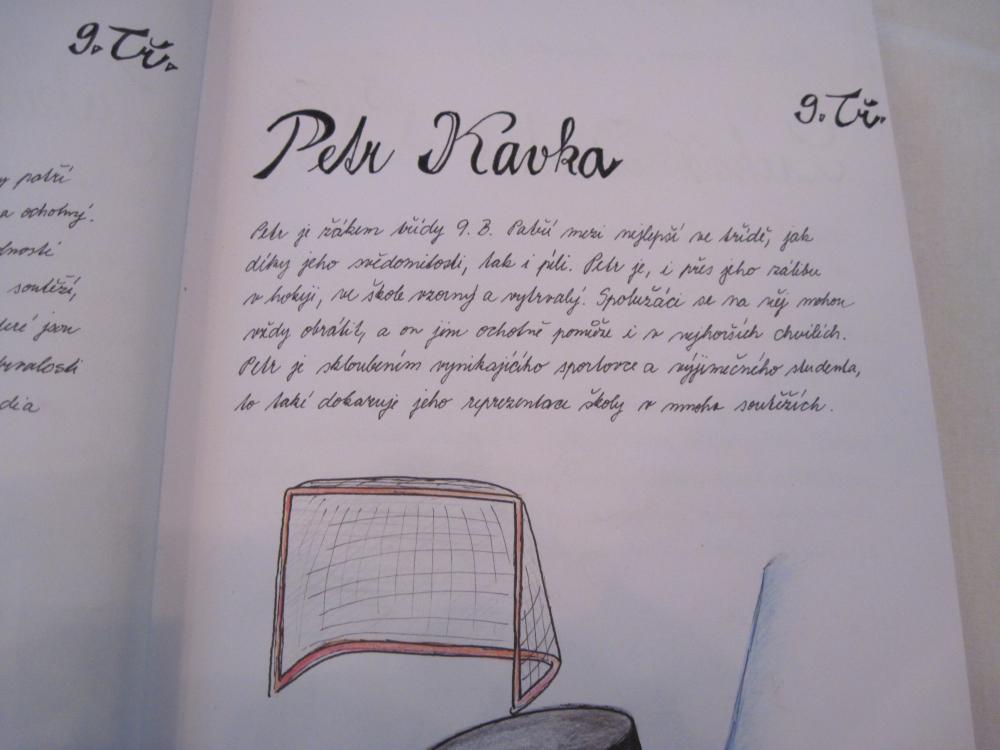 9. Tř.
y patří
a ochotný.
dnosti
soutěží,
teré jsou
trvalosti
dia
9. Tř.
Petr Kavka
Petr je žákem třídy 9. B. Patří mezi nejlepší ve třídě, jak
díky jeho svědomitosti, tak i píli. Petr je, i přes jeho zálibu
v hokeji, ve škole vzorný a vytrvalý. Spolužáci se na něj mohou
vždy obrátit, a on jim ochotně pomůže i v nejhorších chvílích.
Petr je skloubením vynikajícího sportovce a výjimečného studenta,
to také dokazuje jeho reprezentace školy v mnoha soutěžích.